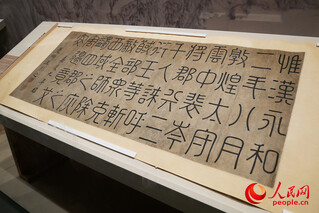 惟漢永和
二年八月
敦煌太守
雲中裴岑
將郡兵三
千人誅呼
衍王等斬
馘部眾克
敵全師除
西域之
四郡之
人民网
people.cn